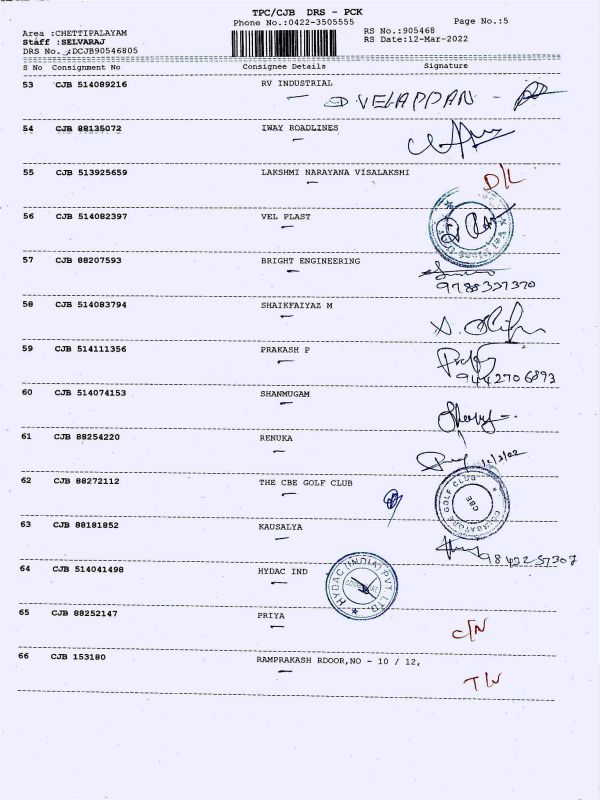 TPC/CJB DRS - PCK
Phone No.:0422-3505555
Page No.:5
Area :CHETTIPALAYAM
Staff :SELVARAJ
DRS No.:DCJB90546805
RS No.:905468
RS Date:12-Mar-2022
S No Consignment No Consignee Details Signature
53 CJB 514089216 RV INDUSTRIAL
VELAPPAN
54 CJB 88135072 IWAY ROADLINES
55 CJB 513925659 LAKSHMI NARAYANA VISALAKSHI
D/L
56 CJB 514082397 VEL PLAST
57 CJB 88207593 BRIGHT ENGINEERING
9785337370
58 CJB 514083794 SHAIKFAIYAZ M
59 CJB 514111356 PRAKASH P
9442706893
60 CJB 514074153 SHANMUGAM
61 CJB 88254220 RENUKA
12/3/22
62 CJB 88272112 THE CBE GOLF CLUB
COIMBATORE GOLF CLUB
CBE
63 CJB 88181852 KAUSALYA
98422-57307
64 CJB 514041498 HYDAC IND
HYDAC (INDIA) PVT LTD.
65 CJB 88252147 PRIYA
C/N
66 CJB 153180 RAMPRAKASH RDOOR,NO - 10 / 12,